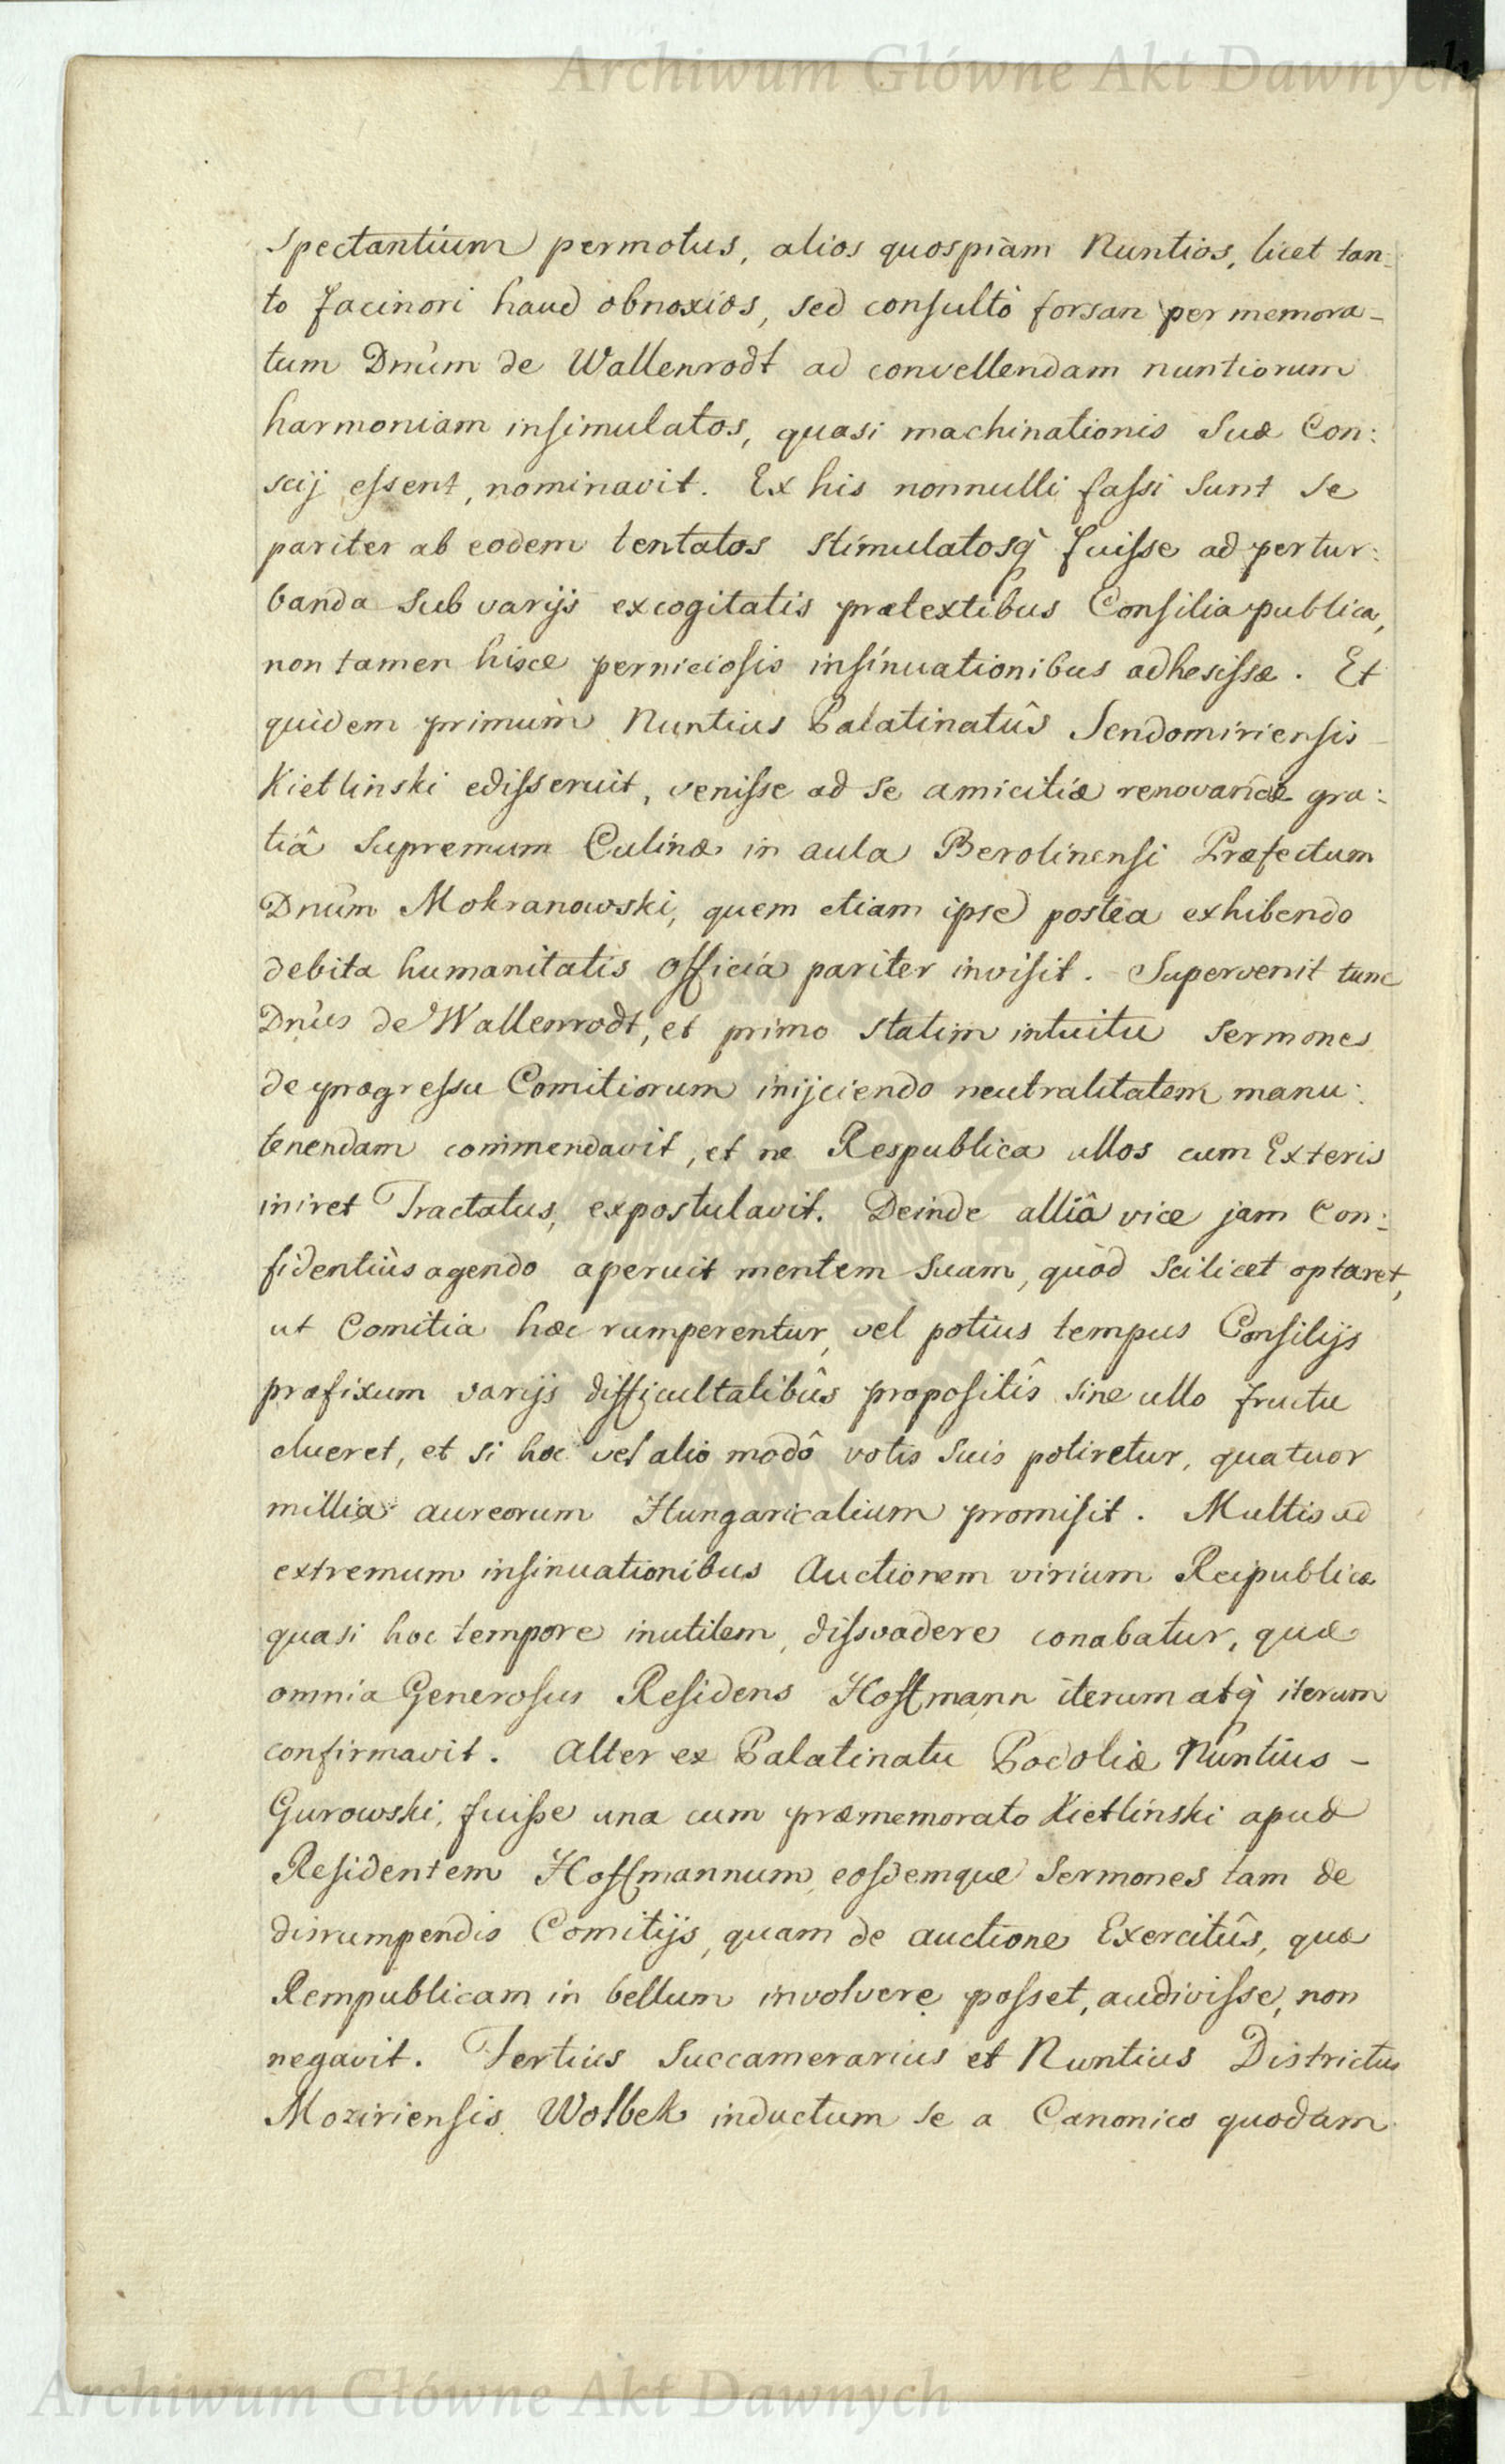 Archiwum Główne Akt Dawnych
Spectantium permotus, alios quospiàm Nuntios, licet tan:
to facinori haud obnoxios, sed consultò forsan per memora-
tum Dnum de Wallenrodt ad convellendam nuntiorum
harmoniam insimulatos, quasi machinationis Suæ Con:
scij essent, nominavit. Ex his nonnulli fassi Sunt se
pariter ab eodem tentatos stimulatosq fuisse ad pertur:
banda Sub varijs excogitatis prætextibus Consilia publica,
non tamen hisce perniciosis insinuationibus adhesisse. Et
quidem primùm Nuntius Palatinatûs Sendomiriensis
Kietlinski edisseruit, venisse ad se amicitiæ renovandæ gra:
tiâ Supremum Culinæ in aula Berolinensi Præfectum
Dnum Mokranowski, quem etiam ipse postea exhibendo
debita humanitatis officia pariter invisit. Supervenit tunc
Dnus de Wallenrodt, et primo statim intuitu sermones
de progressu Comitiorum inijciendo neutralitatem manu:
tenendam commendavit, et ne Respublica ullos cum Exteris
iniret Tractatus, expostulavit. Deinde alliâ vice jam Con:
fidentiùs agendo aperuit mentem Suam, quòd scilicet optaret,
ut Comitia hæc rumperentur, vel potius tempus Consilijs
præfixum varijs difficultatibûs propositîs sine ullo fructu
elueret, et si hoc vel alio modô votis Suis potiretur, quatuor
millia aureorum Hungaricalium promisit. Multis ad
extremum insinuationibus Auctionem virium Reipublicæ
quasi hoc tempore inutilem, dissvadere conabatur, quæ
omnia Generosus Residens Hoffmann iterum atq iterum
confirmavit. Alter ex Palatinatu Podoliæ Nuntius -
Gurowski, fuisse una cum præmemorato Kietlinski apud
Residentem Hoffmannum, eosdemque Sermones tam de
disrumpendis Comitijs, quam de auctione Exercitûs, quæ
Rempublicam in bellum involvere posset, audivisse, non
negavit. Tertius Succamerarius et Nuntius Districtus
Moziriensis Wolbek inductum se a Canonico quodam
Archiwum Główne Akt Dawnych